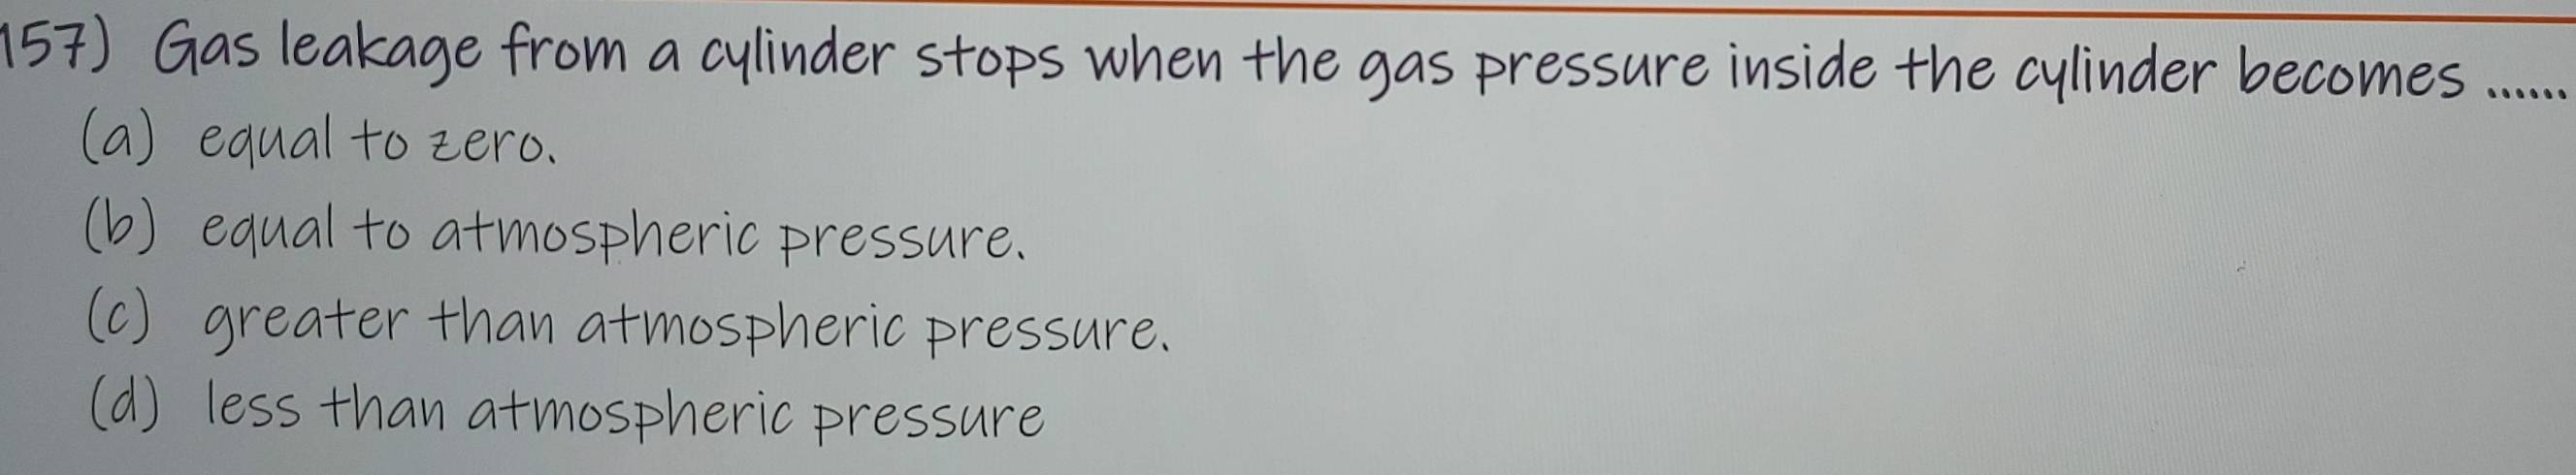 157) Gas leakage from a cylinder stops when the gas pressure inside the cylinder becomes ......
(a) equal to zero.
(b) equal to atmospheric pressure.
(c) greater than atmospheric pressure.
(d) less than atmospheric pressure